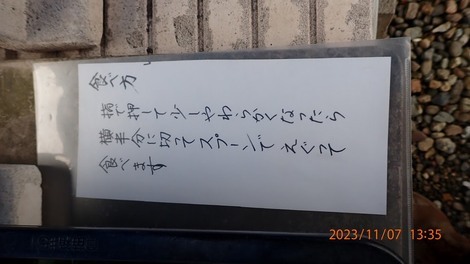 食べ方
指で押して少しやわらかくなったら
横半分に切てスプーンでえぐって
食べます
2023/11/07 13:35